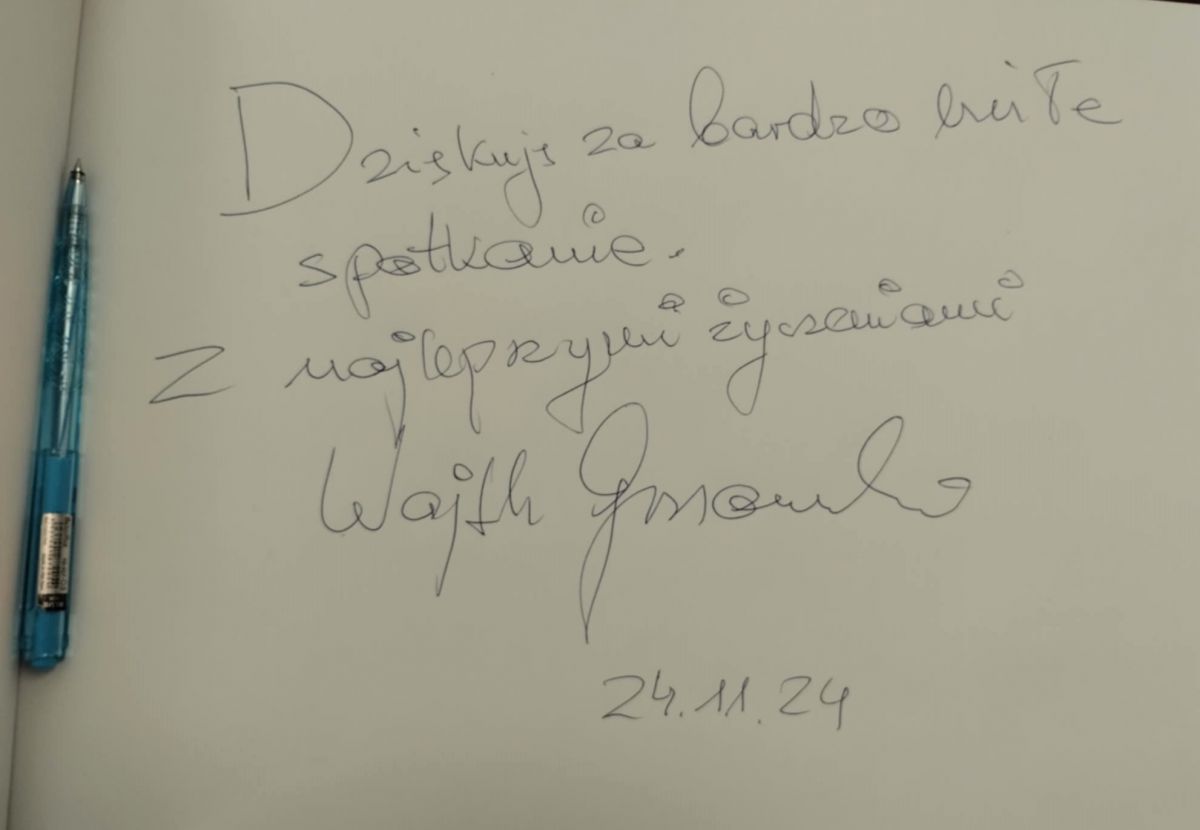 Dziękuję za bardzo miłe
spotkanie.
Z najlepszymi życzeniami
24.11.24